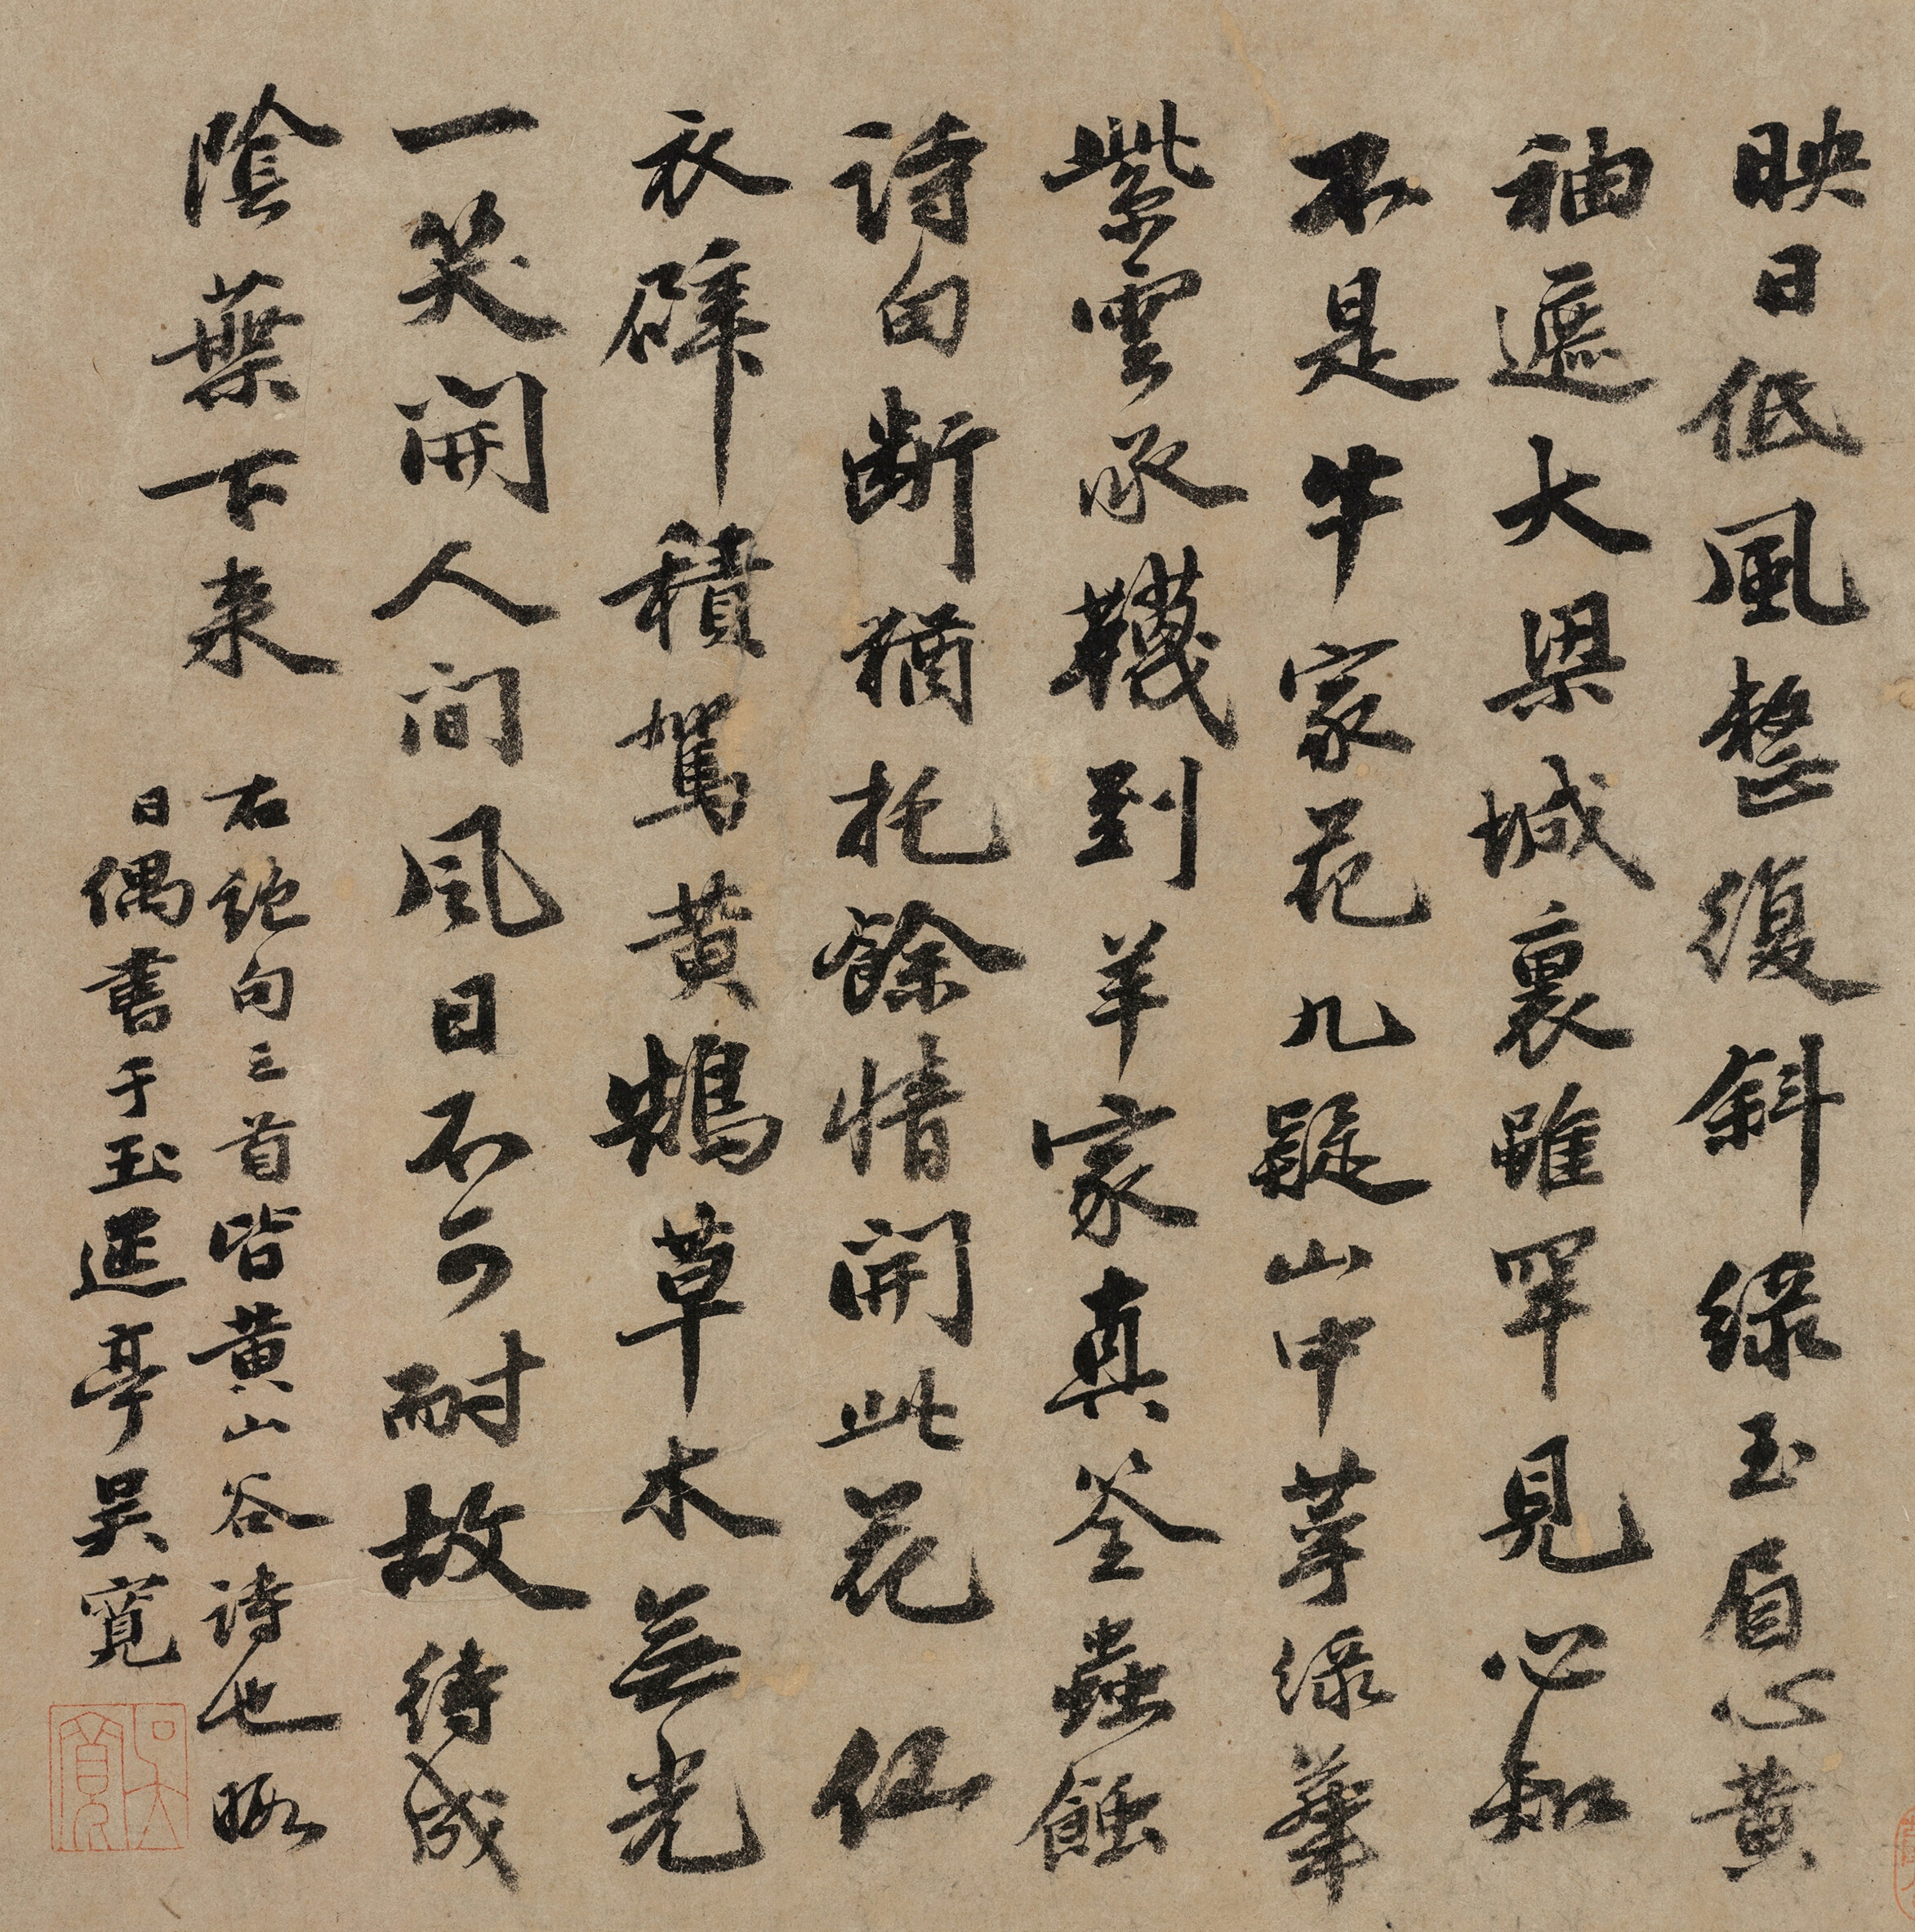 映日低風整復斜綠玉眉心黃
袖遮大梁城裏雖罕見心知
不是牛家花九疑山中萼綠華
紫雲承韈到羊家真筌蟲蝕
詩句断猶托餘情開此花仙
衣襞積駕黃鵠草木無光
一笑開人間風日不可耐故待成
陰葉下来
右絕句三首皆黃山谷詩也暇
日偶書于玉延亭吳寬
吳寬